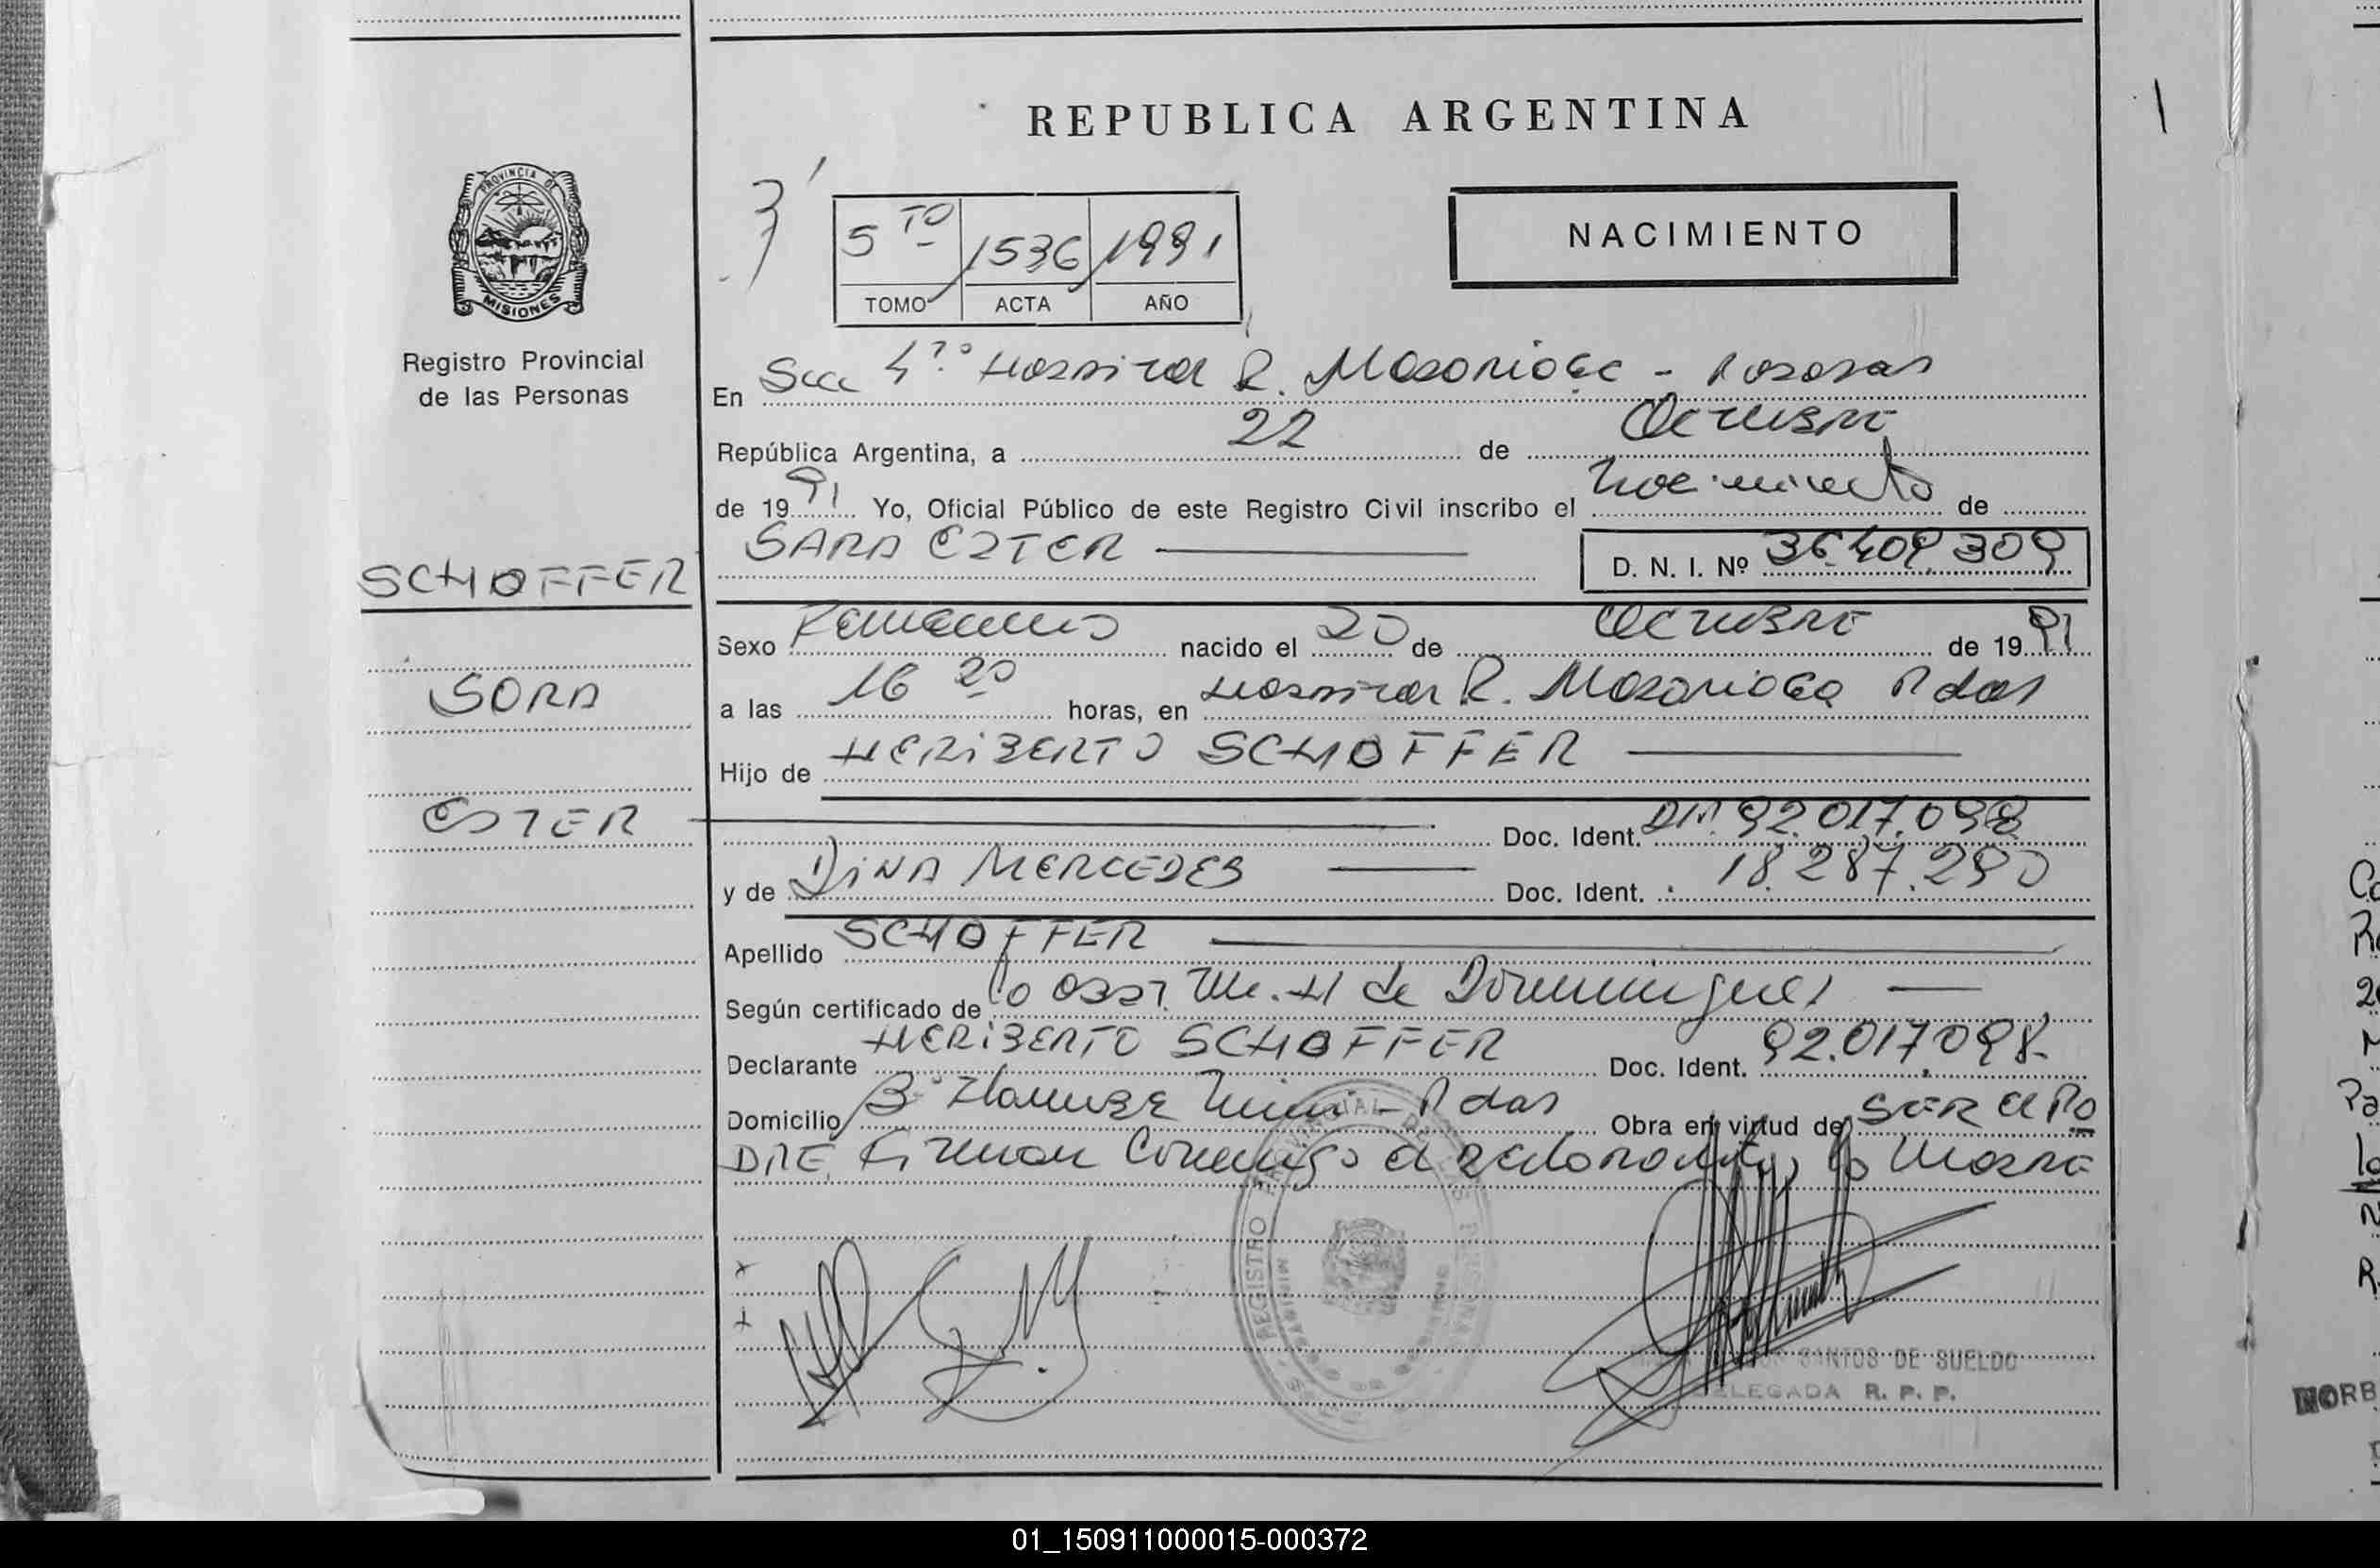 REPUBLICA ARGENTINA
PROVINCIA DE
MISIONES
Registro Provincial
de las Personas
5TO 1536 1991
TOMO ACTA AÑO
NACIMIENTO
En Hospital R. Posadas
República Argentina, a 22 de Octubre
de 1991 Yo, Oficial Público de este Registro Civil inscribo el nacimiento de
SARA ESTER D. N. I. Nº 36.409.309
SCHOFFER
SARA
ESTER
Sexo Femenino nacido el 20 de Octubre de 1991
a las 16 20 horas, en Hospital R. Pdas
Hijo de HERIBERTO SCHOFFER
Doc. Ident. DNI 92.017.098
y de DINA MERCEDES Doc. Ident. 18.287.290
Apellido SCHOFFER
Según certificado de la Obst. M. H de Domingues
Declarante HERIBERTO SCHOFFER Doc. Ident. 92.017.098
Domicilio Bº Pdas Obra en virtud de SER el PA
DRE Firman Conmigo el declarante y la Madre
REGISTRO PROVINCIAL DE LAS PERSONAS
SANTOS DE SUELDO
DELEGADA R. P. P.
NORB
01_150911000015-000372